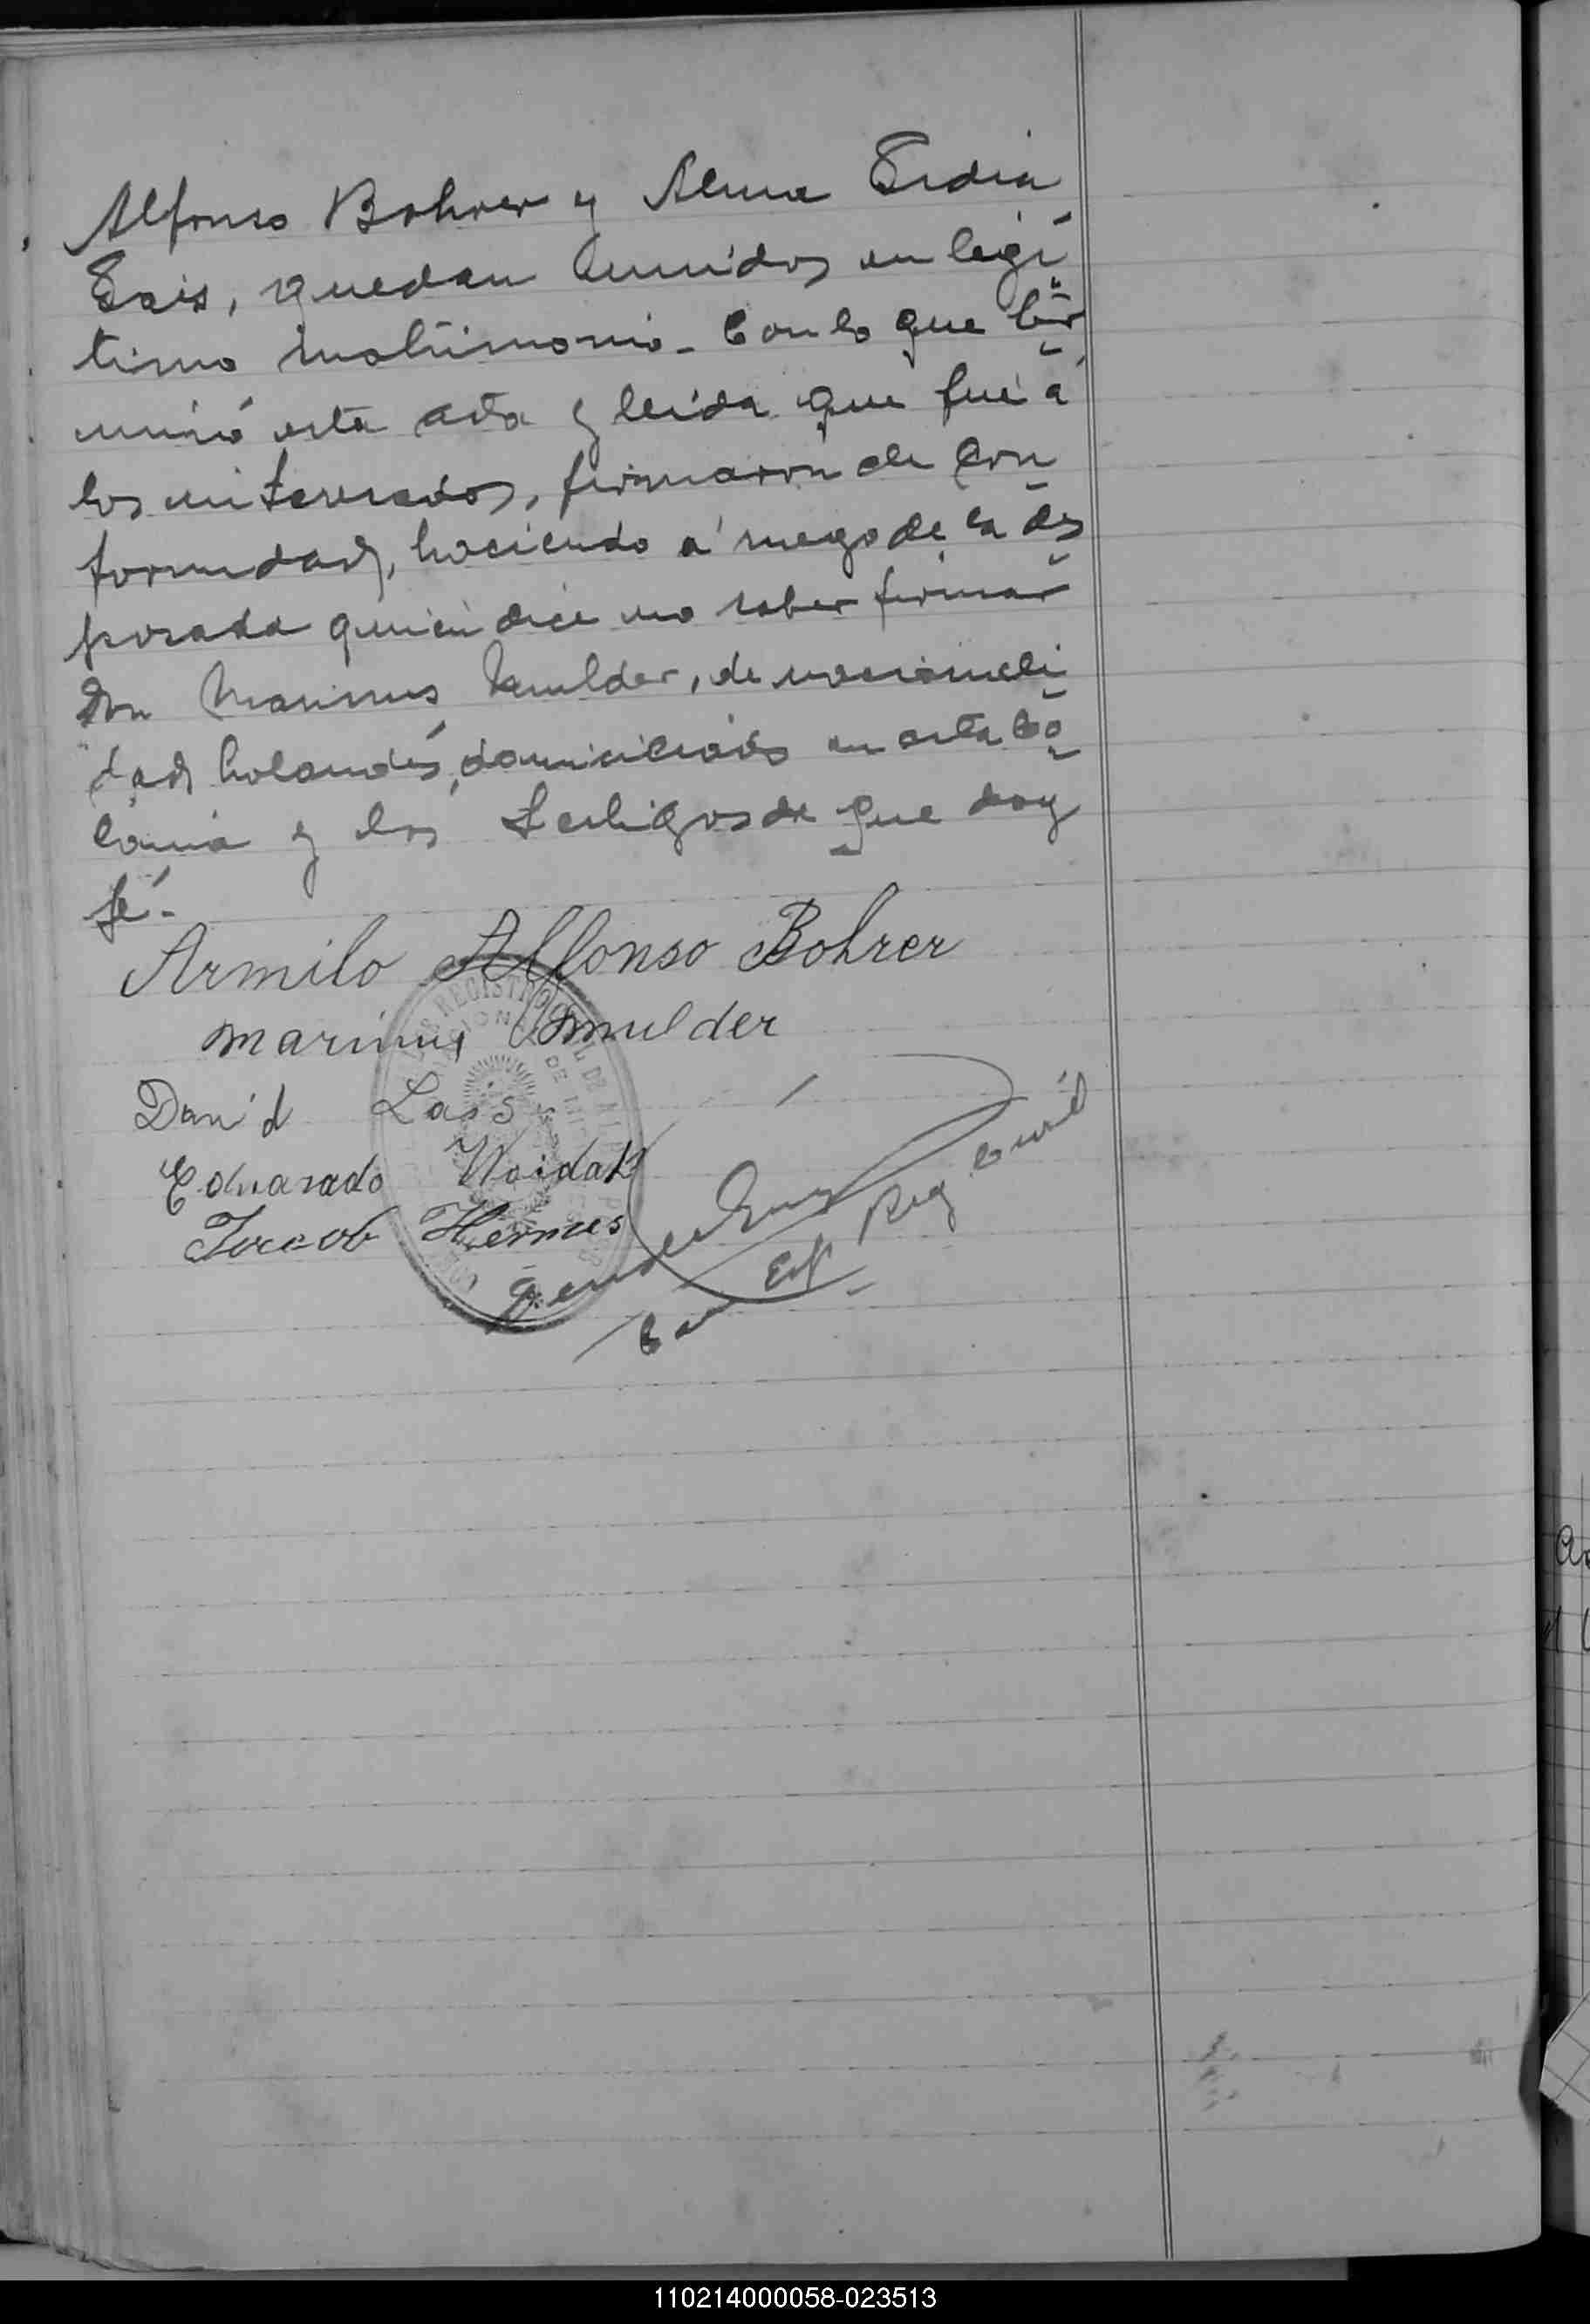 Alfonso Bohrer y Alma Erdia
Lais, quedan hunidos en legi
timo matrimonio - Con lo que ter
minó esta acta y leida que fué á
los interesados, firmaron de con
formidad, haciendo á ruego de la des
posada quien dice no saber firmar
don Marinus Mulder, de nacionali
dad holandés, domiciliado en esta Co
lonia y los testigos de que doy
fé -
Armilo Alfonso Bohrer
Marinus Mulder
David Lais
Eduarado Woidak
Jacob Hermes
Enc Reg Civil
REGISTRO CIVIL DE
110214000058-023513